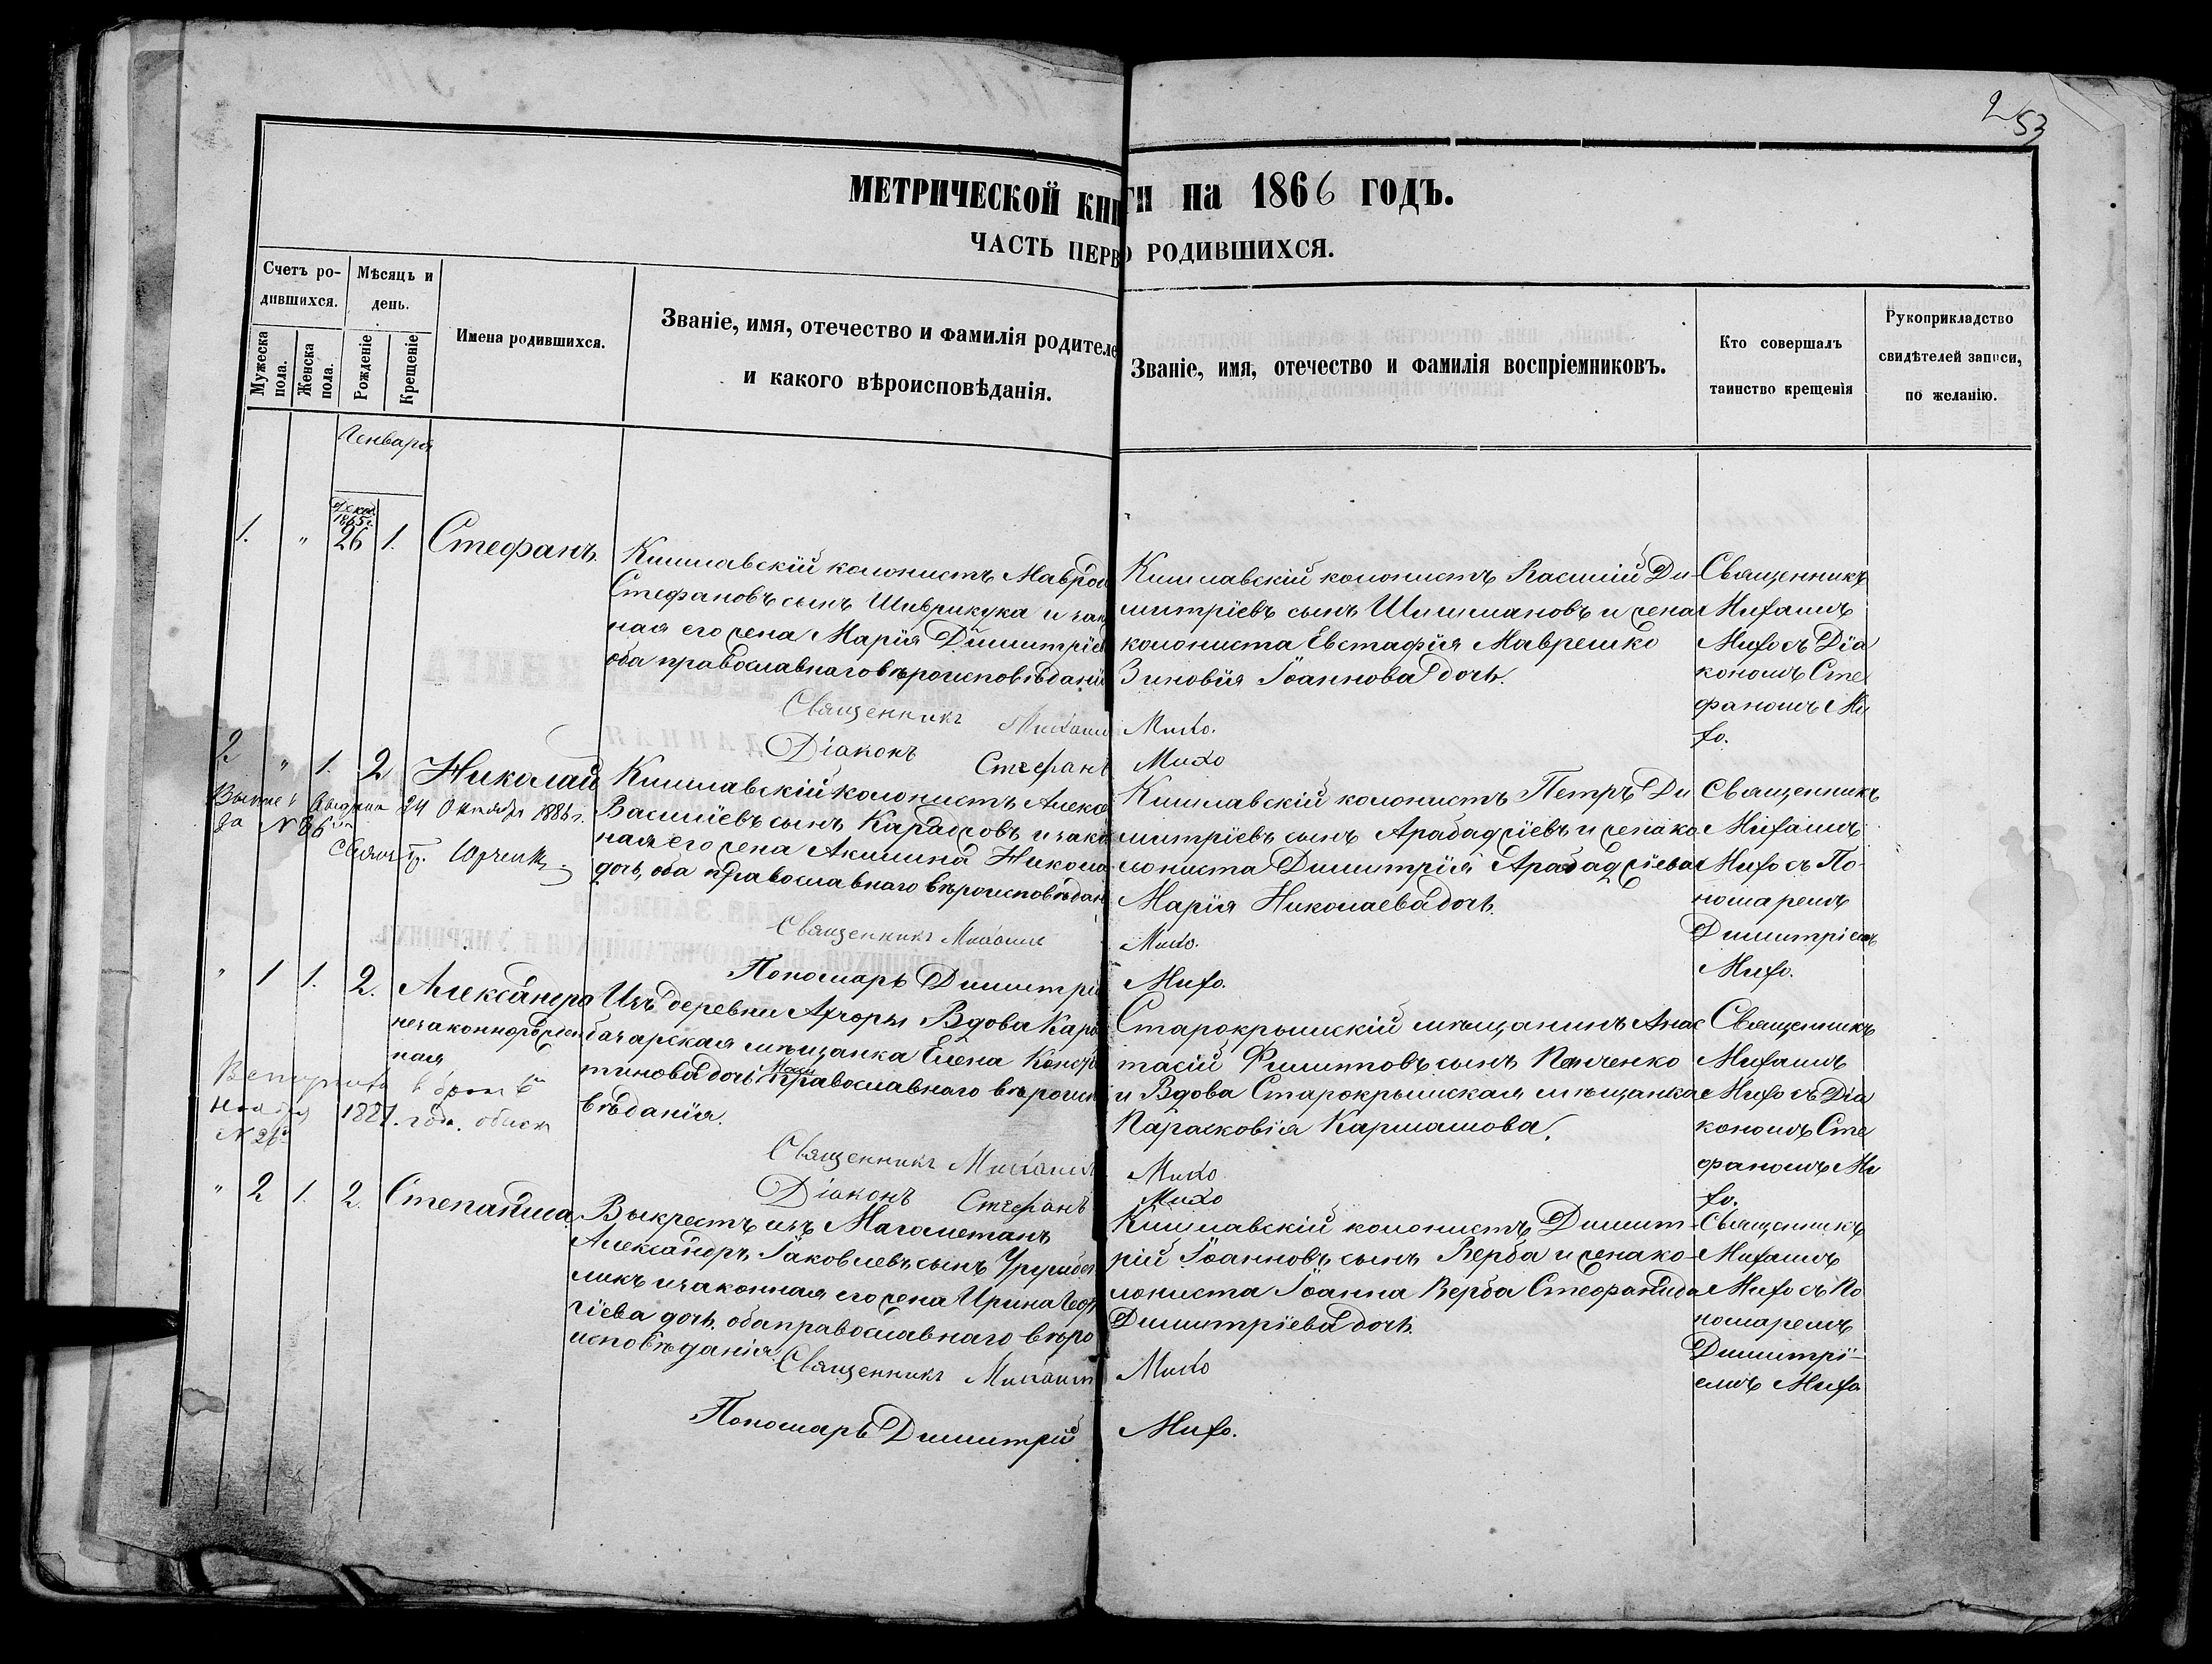 2
53
МЕТРИЧЕСКОЙ КНИГИ на 1866 ГОДЪ.
ЧАСТЬ ПЕРВО РОДИВШИХСЯ.
Счетъ ро-
дившихся.
Мужеска
пола.
Женска
пола.
Мѣсяцъ и
день.
Рожденіе
Крещеніе
Имена родившихся.
Званіе, имя, отечество и фамилія родителе
и какого вѣроисповѣданія.
Званіе, имя, отечество и фамилія воспріемниковъ.
Кто совершалъ
таинство крещенія
Рукоприкладство
свидѣтелей записи,
по желанію.
Генваря
1. " Декаб. 1865 г. 26 1. Стефанъ.
Кишлавскій колонистъ Маврод
Стефановъ сынъ Шиврикука и зак
ная его жена Марія Димитріе
оба православнаго вѣроисповѣданія
Священникъ Михаил
Діаконъ Стефанъ
Кишлавскій колонистъ Василій Ди-
митріевъ сынъ Шишмановъ и жена
колониста Евстафія Маврешко
Зиновія Іоаннова дочь.
Михо.
Михо
Священникъ
Михаилъ
Михо съ Діа
кономъ Сте
фаномъ Ми
хо.
2 " 1. 2 Николай
24 Октября 1886 г.
за № 36
Кишлавскій колонистъ Алекс
Василіевъ сынъ Караджовъ и зако
ная его жена Акилина Никола
дочь, оба православнаго вѣроисповѣдан
Священникъ Михаилъ
Пономарь Димитрій
Кишлавскій колонистъ Петръ Ди
митріевъ сынъ Арабаджіевъ и жена ко
лониста Димитрія Арабаджіева
Марія Николаева дочь.
Михо.
Михо.
Священникъ
Михаилъ
Михо съ По-
номаремъ
Димитріемъ
Михо.
" 1 1. 2. Александра
незаконнорожден
ная
1881. года. обыск
№ 26
Изъ деревни Ахчоры Вдова Кара
базарская мѣщанка Елена Конста
тинова дочь православнаго вѣроиспо
вѣданія.
Священникъ Михаилъ
Діаконъ Стефанъ
Старокрымскій мѣщанинъ Анас
тасій Филипповъ сынъ Панченко
и Вдова Старокрымская мѣщанка
Парасковія Кармашова.
Михо
Михо
Священникъ
Михаилъ
Михо съ Діа
кономъ Сте
фаномъ Ми
хо.
" 2 1. 2. Степанида
Выкрестъ изъ Магометанъ
Александръ Іаковлевъ сынъ
ликъ и законная его жена Ирина Геор
гіева дочь. оба православнаго вѣро
исповѣданія
Священникъ Михаилъ
Пономарь Димитрій
Кишлавскій колонистъ Димит-
рій Іоанновъ сынъ Верба и жена ко-
лониста Іоанна Верба Стефанида
Димитріева дочь.
Михо
Михо.
Священникъ
Михаилъ
Михо съ По
номаремъ
Димитрі-
емъ Михо